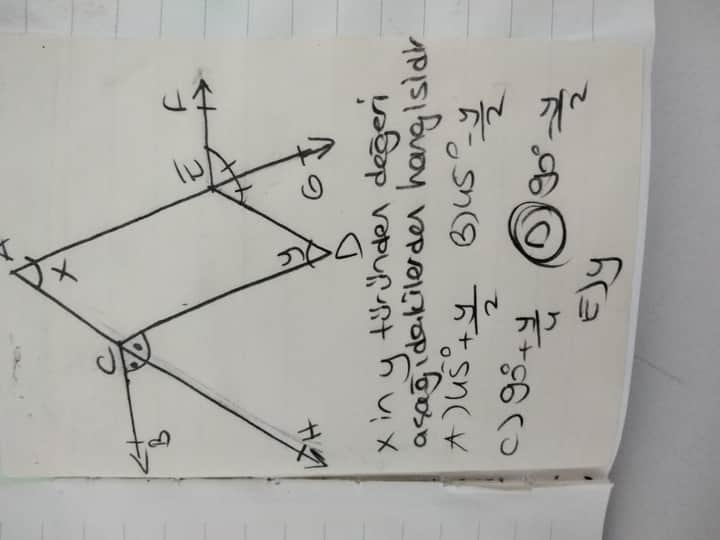 A
x
C
B
H
E
F
G
y
D
x in y türünden değeri
aşağıdakilerden hangisidir
A) 45° + y/2 B) 45° - y/2
C) 90° + y/4 D) 90° - y/2
E) y